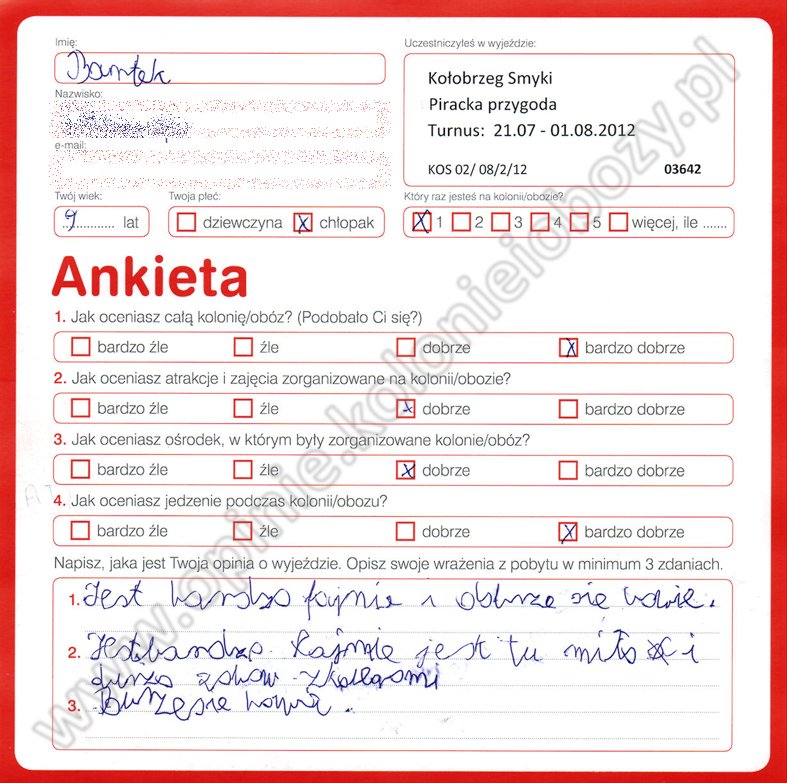 Imię:
Bartek
Uczestniczyłeś w wyjeździe:
Kołobrzeg Smyki
Piracka przygoda
Turnus: 21.07 - 01.08.2012
KOS 02/ 08/2/12 03642
Nazwisko:
e-mail:
Twój wiek:
9 lat
Twoja płeć:
dziewczyna X chłopak
Który raz jesteś na kolonii/obozie?
X 1 2 3 4 5 więcej, ile .......
Ankieta
1. Jak oceniasz całą kolonię/obóz? (Podobało Ci się?)
bardzo źle źle dobrze X bardzo dobrze
2. Jak oceniasz atrakcje i zajęcia zorganizowane na kolonii/obozie?
bardzo źle źle X dobrze bardzo dobrze
3. Jak oceniasz ośrodek, w którym były zorganizowane kolonie/obóz?
bardzo źle źle X dobrze bardzo dobrze
4. Jak oceniasz jedzenie podczas kolonii/obozu?
bardzo źle źle dobrze X bardzo dobrze
Napisz, jaka jest Twoja opinia o wyjeździe. Opisz swoje wrażenia z pobytu w minimum 3 zdaniach.
1. Jest bardzo fajnie i dobrze się bawię.
2. Jest bardzo fajnie jest tu miło i
dużo zabaw z kolegami
3. Dużo się bawię.
www.opinie.kolonieiobozy.pl